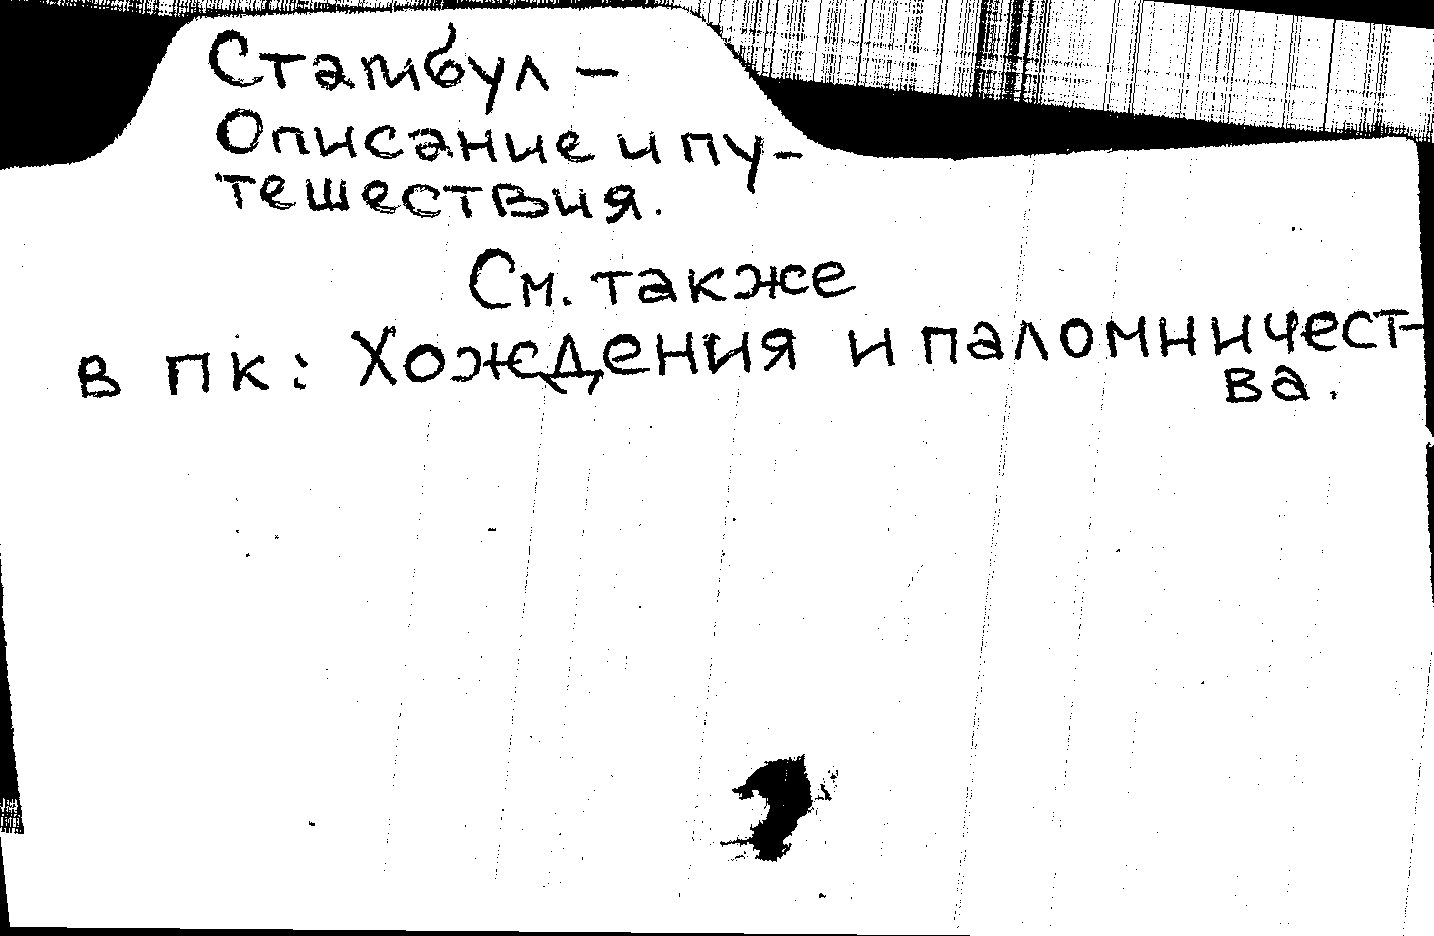 Стамбул –
Описание и пу-
тешествия.
См. также
в пк: Хождения и паломничест-
ва.